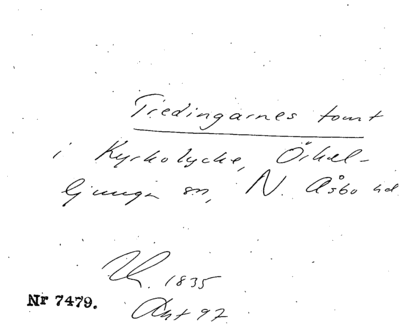 Tiedingarnes tomt
i Kyrkolycke, Örkel-
ljunga sn, N. Åsbo hd.
Uk. 1835
Nr 7479.
Akt 92